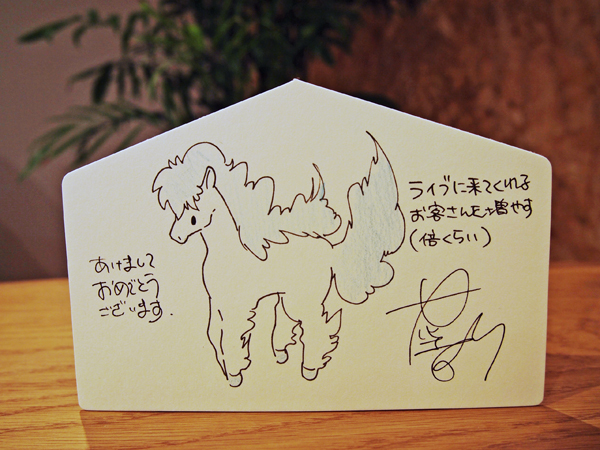 あけまして
おめでとう
ございます.
ライブに来てくれる
お客さんを増やす
(倍くらい)